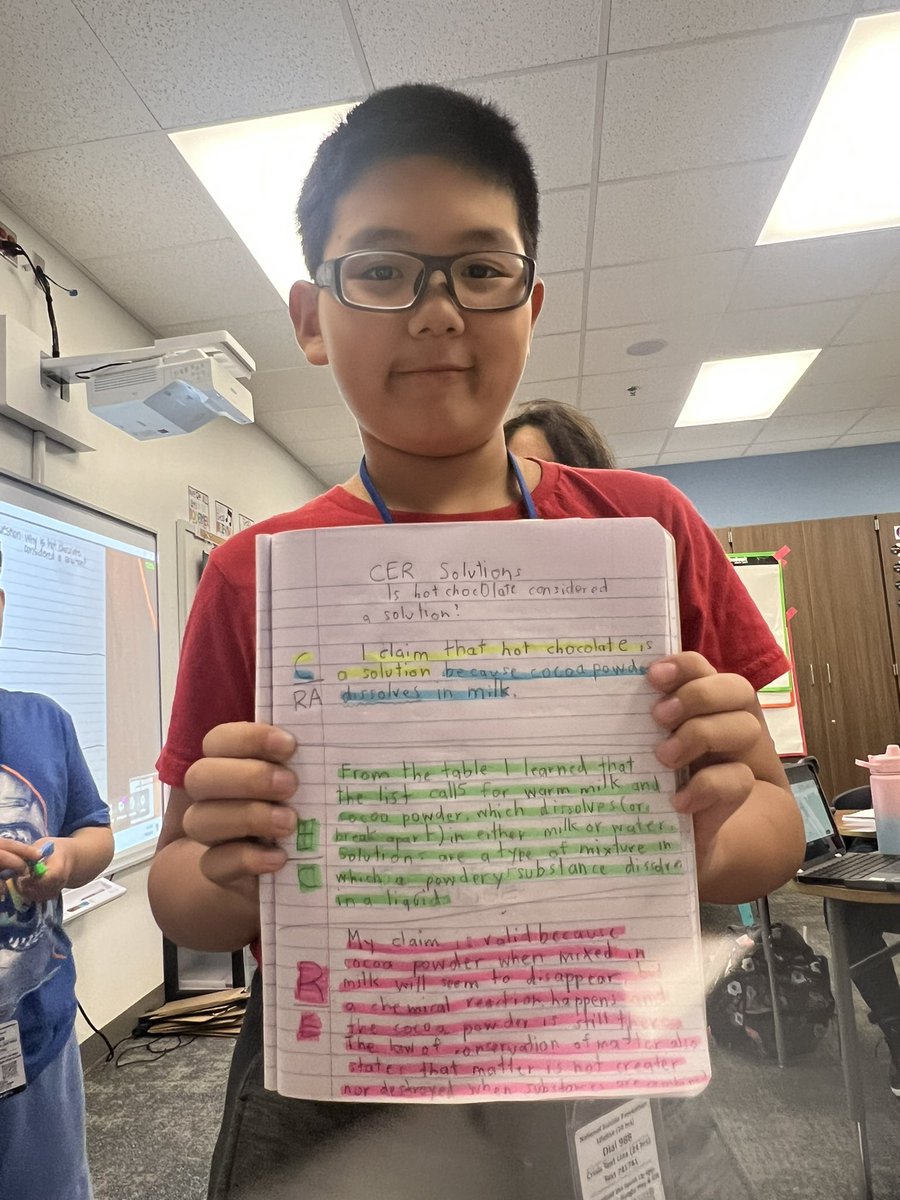 CER Solutions
Is hot chocolate considered
a solution?
I claim that hot chocolate is
a solution because cocoa powder
dissolves in milk.
C
RA
From the table I learned that
the list calls for warm milk and
cocoa powder, which dissolves (or
break apart) in either milk or water.
Solutions are a type of mixture in
which a powdery substance dissolve
in a liquid.
E
My claim is valid because
cocoa powder when mixed in
milk will seem to disappear,
a chemical reaction happens and
the cocoa powder is still there
The law of conservation of matter also
states that matter is not creater
nor destroyed when substances are
R
E
Question: Why is hot chocolate
considered a
National Suicide Prevention
Lifeline (24 hrs)
Dial 988
Crisis Text Line (24 hrs)
Text 741741